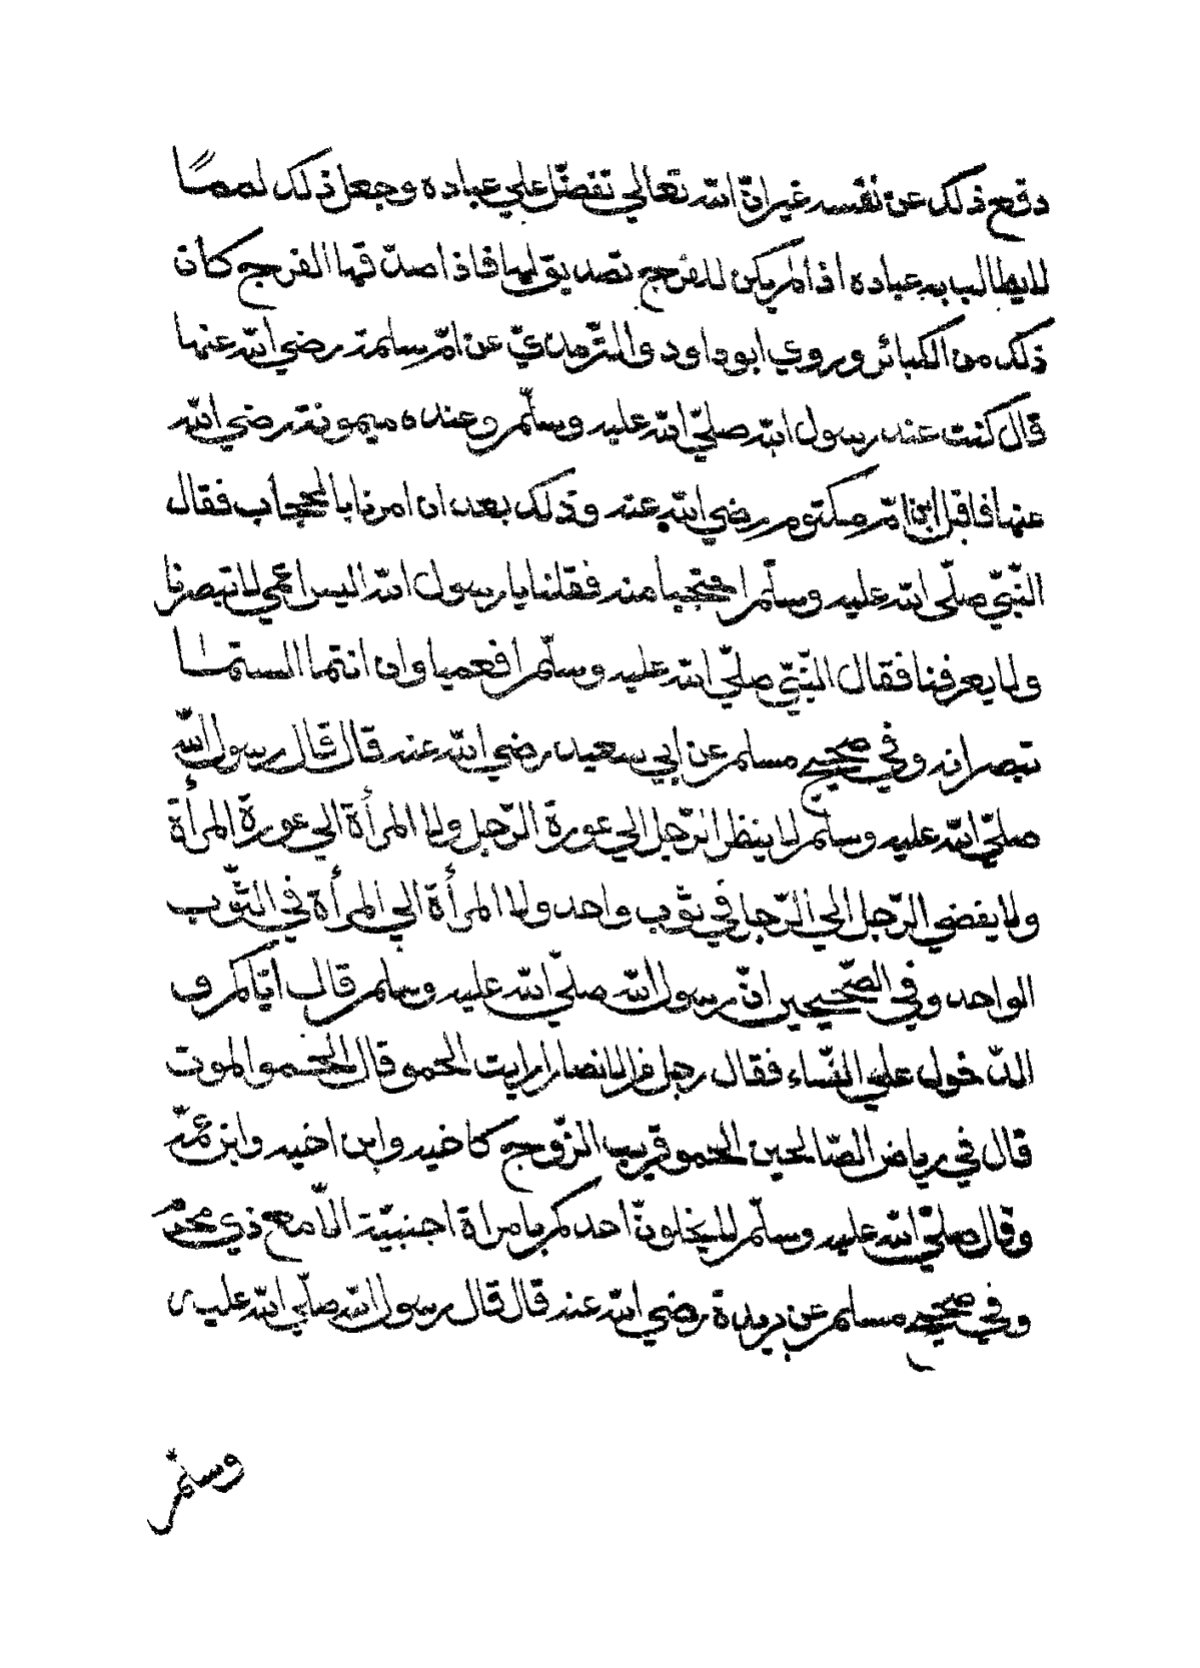 دفع ذلك عن نفسه غير انّ الله تعالي تفضّل علي عباده وجعل ذلك لمما
لايطالب به عباده اذا لم يكن للفرج تصديق لها فاذا صدّقها الفرج كان
ذلك من الكبائر وروي ابوداود والتّرمذيّ عن امّ سلمة رضي الله عنها
قال كنت عند رسول الله صلّي الله عليه وسلّم وعنده ميمونة رضي الله
عنها فاقبل ابن امّ مكتوم رضي الله عنه وذلك بعد ان امرنا بالحجاب فقال
النّبيّ صلّي الله عليه وسلّم احتجبا منه فقلنا يا رسول الله اليس اعمي لا تبصرنا
ولا يعرفنا فقال النّبيّ صلّي الله عليه وسلّم افعميا وان انتما الستما
تبصرانه وفي صحيح مسلم عن ابي سعيد رضي الله عنه قال قال رسول الله
صلّي الله عليه وسلّم لا ينظر الرّجل الي عورة الرّجل ولا المرأة الي عورة المرأة
ولا يفضي الرّجل الي الرّجل في ثوب واحد ولا المرأة الي المرأة في الثّوب
الواحد وفي الصّحيحين انّ رسول الله صلّي الله عليه وسلم قال ايّاكم و
الدّخول علي النّساء فقال رجل من الانصار ارايت الحمو قال الحمو الموت
قال في رياض الصّالحين الحمو قريب الزّوج كاخيه وابن اخيه وابن عمّه
وقال صلّي الله عليه وسلّم لا يخلونّ احدكم بامراة اجنبيّة الّا مع ذي محرم
وفي صحيح مسلم عن بريدة رضي الله عنه قال قال رسول الله صلّي الله عليه
وسلّم